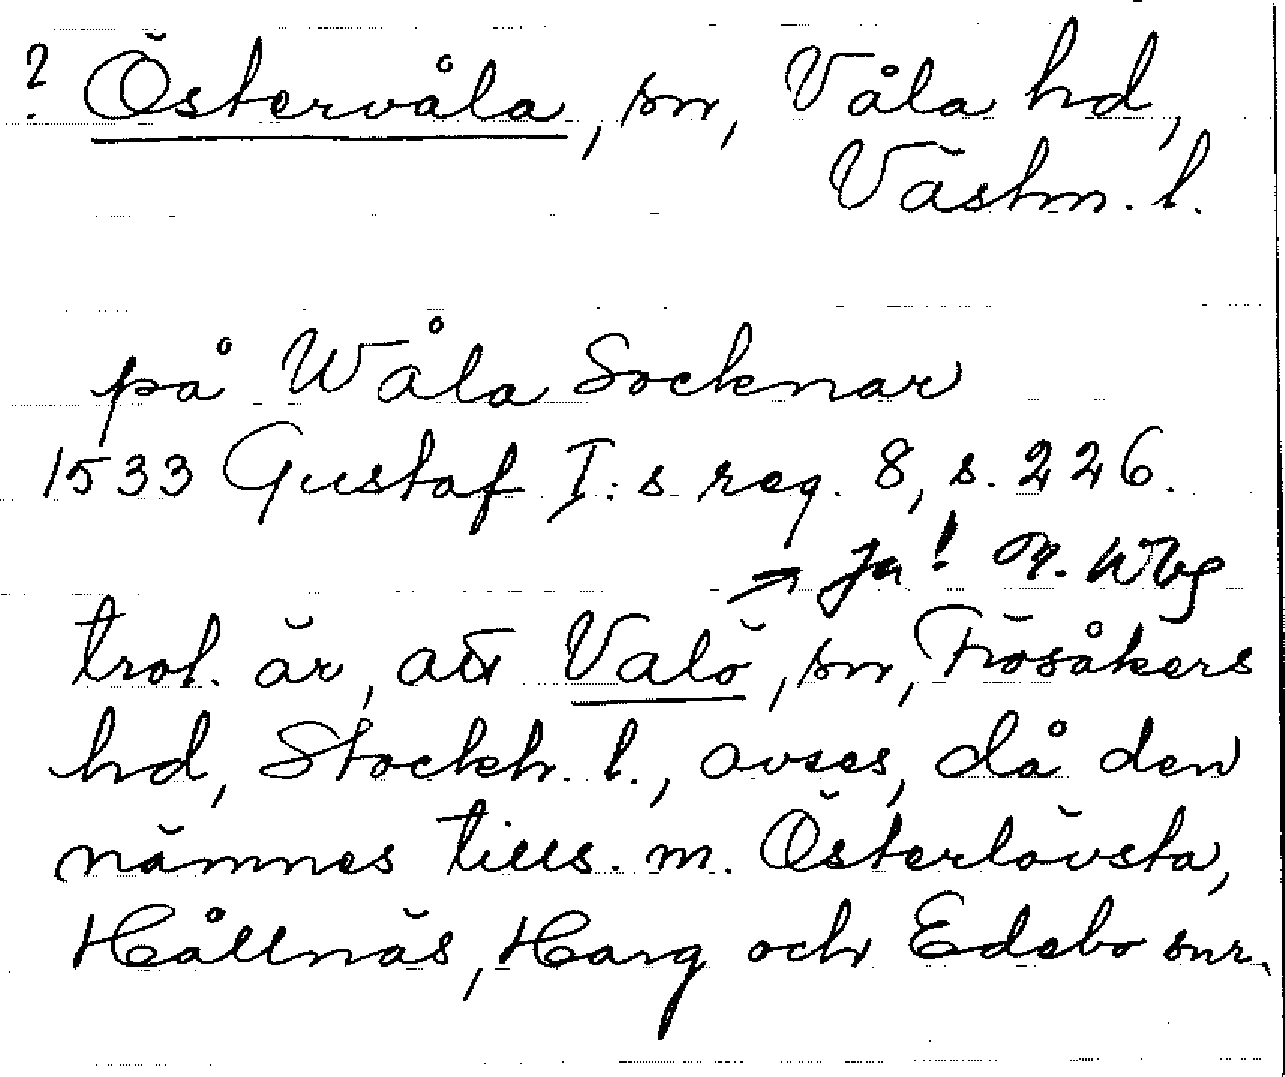 ? Östervåla, sn, Våla hd,
Västm. l.
på Wåla Socknar
1533 Gustaf I:s reg. 8, s. 226.
→ Ja!
trol. är, att Valö, sn, Frösåkers
hd, Stockh. l., avses, då den
nämnes tills. m. Österlövsta,
Hållnäs, Harg och Edebo snr.